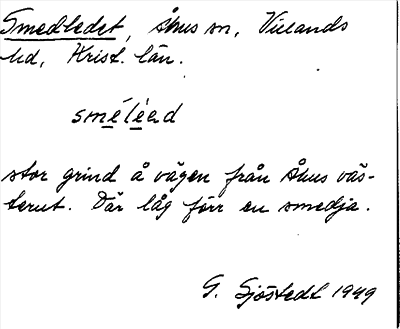 Smedledet, Åhus sn, Villands
hd, Krist. län.
sméléəd
stor grind å vägen från Åhus väs-
terut. Där låg förr en smedja.
G. Sjöstedt 1949